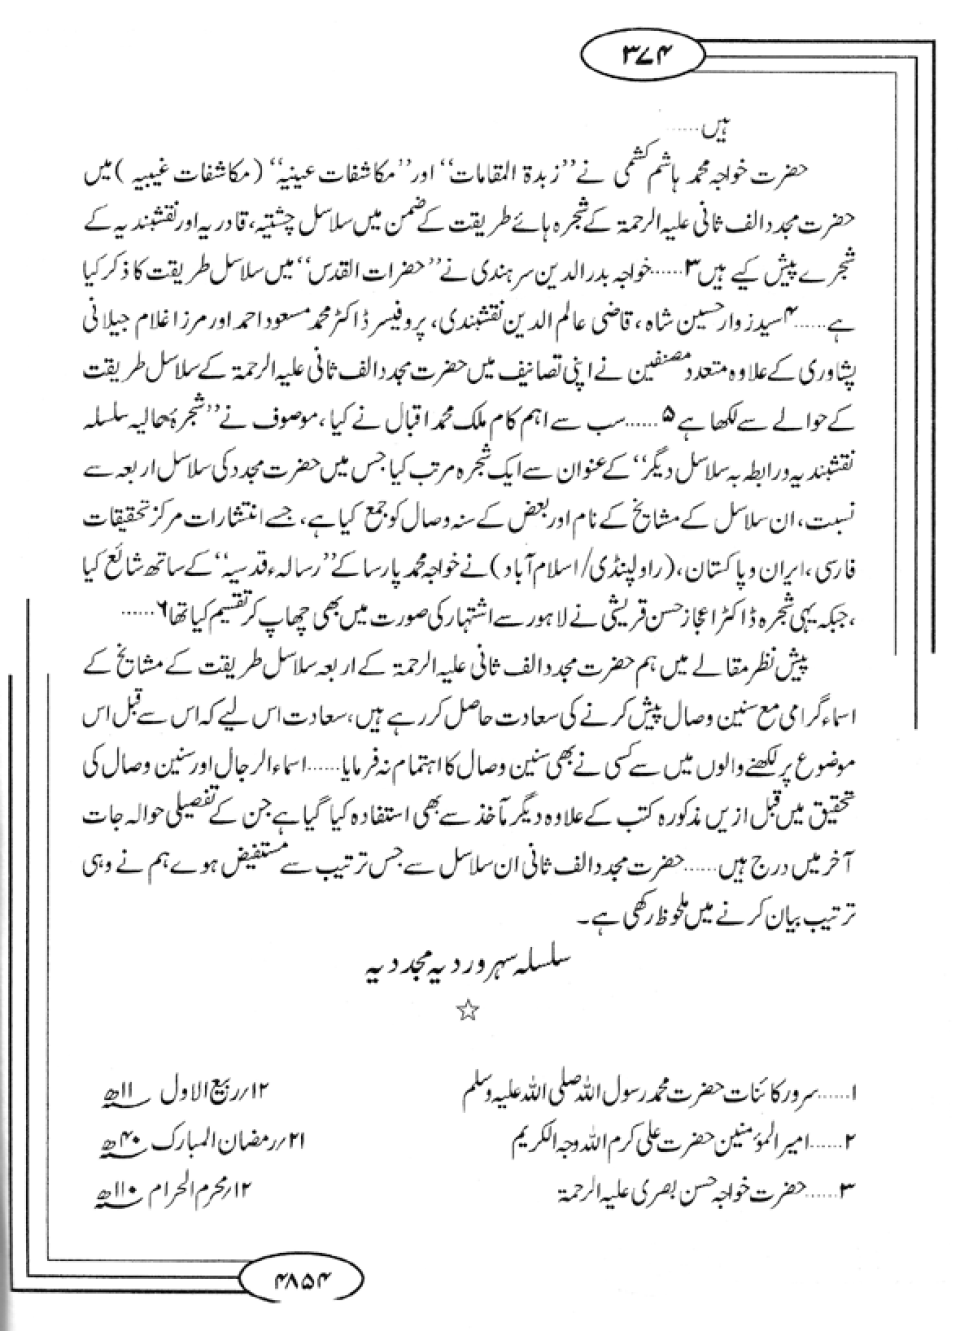 ۳۷۴
ہیں......
حضرت خواجہ محمد ہاشم کشمی نے ”زبدۃ المقامات“ اور ”مکاشفات عینیہ“ (مکاشفات غیبیہ) میں
حضرت مجدد الف ثانی علیہ الرحمۃ کے شجرہ ہائے طریقت کے ضمن میں سلاسل چشتیہ، قادریہ اور نقشبندیہ کے
شجرے پیش کیے ہیں۳......خواجہ بدرالدین سرہندی نے ”حضرات القدس“ میں سلاسل طریقت کا ذکر کیا
ہے......۴ سید زوار حسین شاہ، قاضی عالم الدین نقشبندی، پروفیسر ڈاکٹر محمد مسعود احمد اور مرزا غلام جیلانی
پشاوری کے علاوہ متعدد مصنفین نے اپنی تصانیف میں حضرت مجدد الف ثانی علیہ الرحمۃ کے سلاسل طریقت
کے حوالے سے لکھا ہے ۵......سب سے اہم کام ملک محمد اقبال نے کیا، موصوف نے ”شجرۂ حالیہ سلسلہ
نقشبندیہ و رابطہ بہ سلاسل دیگر“ کے عنوان سے ایک شجرہ مرتب کیا جس میں حضرت مجدد کی سلاسل اربعہ سے
نسبت، ان سلاسل کے مشایخ کے نام اور بعض کے سنہ وصال کو جمع کیا ہے، جسے انتشارات مرکز تحقیقات
فارسی، ایران و پاکستان، (راولپنڈی/اسلام آباد) نے خواجہ محمد پارسا کے ”رسالہء قدسیہ“ کے ساتھ شائع کیا
، جبکہ یہی شجرہ ڈاکٹر اعجاز حسن قریشی نے لاہور سے اشتہار کی صورت میں بھی چھاپ کر تقسیم کیا تھا۶......
پیش نظر مقالے میں ہم حضرت مجدد الف ثانی علیہ الرحمۃ کے اربعہ سلاسل طریقت کے مشایخ کے
اسماء گرامی مع سنین وصال پیش کرنے کی سعادت حاصل کر رہے ہیں، سعادت اس لیے کہ اس سے قبل اس
موضوع پر لکھنے والوں میں سے کسی نے بھی سنین وصال کا اہتمام نہ فرمایا......اسماء الرجال اور سنین وصال کی
تحقیق میں قبل ازیں مذکورہ کتب کے علاوہ دیگر مآخذ سے بھی استفادہ کیا گیا ہے جن کے تفصیلی حوالہ جات
آخر میں درج ہیں......حضرت مجدد الف ثانی ان سلاسل سے جس ترتیب سے مستفیض ہوے ہم نے وہی
ترتیب بیان کرنے میں ملحوظ رکھی ہے۔
سلسلہ سہروردیہ مجددیہ
☆
۱......سرور کائنات حضرت محمد رسول اللہ صلی اللہ علیہ وسلم ۱۲/ربیع الاول ۱۱ھ
۲......امیر المؤمنین حضرت علی کرم اللہ وجہ الکریم ۲۱/رمضان المبارک ۴۰ھ
۳......حضرت خواجہ حسن بصری علیہ الرحمۃ ۱۲/محرم الحرام ۱۱۰ھ
۴۸۵۴